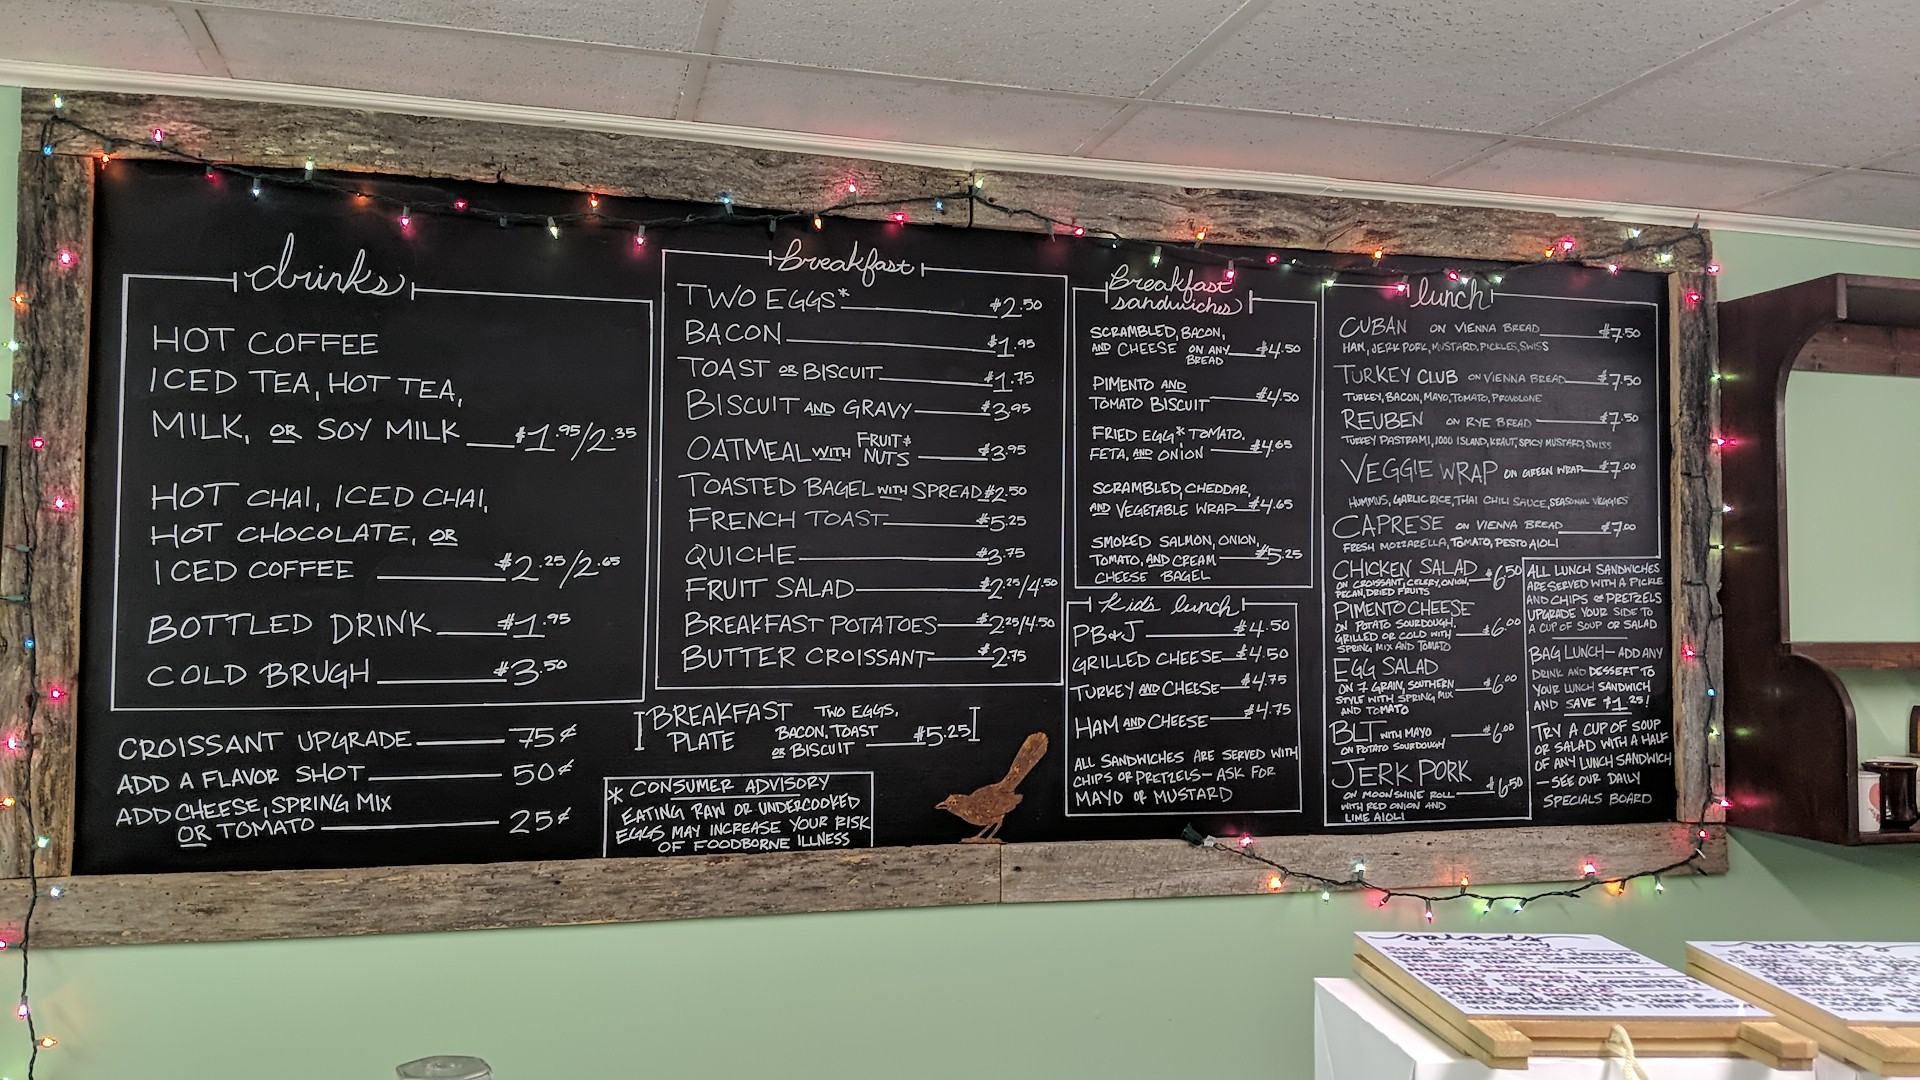 drinks
HOT COFFEE
ICED TEA, HOT TEA,
MILK, OR SOY MILK $1.95/2.35
HOT CHAI, ICED CHAI,
HOT CHOCOLATE, OR
ICED COFFEE $2.25/2.65
BOTTLED DRINK $1.95
COLD BRUGH $3.50
CROISSANT UPGRADE 75¢
ADD A FLAVOR SHOT 50¢
ADD CHEESE, SPRING MIX
OR TOMATO 25¢
breakfast
TWO EGGS* $2.50
BACON $1.95
TOAST OR BISCUIT $1.75
BISCUIT AND GRAVY $3.95
OATMEAL WITH FRUIT & NUTS $3.95
TOASTED BAGEL WITH SPREAD $2.50
FRENCH TOAST $5.25
QUICHE $3.75
FRUIT SALAD $2.25/4.50
BREAKFAST POTATOES $2.25/4.50
BUTTER CROISSANT $2.75
BREAKFAST PLATE
TWO EGGS,
BACON, TOAST
OR BISCUIT $5.25
* CONSUMER ADVISORY
EATING RAW OR UNDERCOOKED
EGGS MAY INCREASE YOUR RISK
OF FOODBORNE ILLNESS
breakfast
sandwiches
SCRAMBLED, BACON,
AND CHEESE ON ANY BREAD $4.50
PIMENTO AND
TOMATO BISCUIT $4.50
FRIED EGG* TOMATO,
FETA, AND ONION $4.65
SCRAMBLED, CHEDDAR,
AND VEGETABLE WRAP $4.65
SMOKED SALMON, ONION,
TOMATO, AND CREAM $5.25
CHEESE BAGEL
kid's lunch
PB&J $4.50
GRILLED CHEESE $4.50
TURKEY AND CHEESE $4.75
HAM AND CHEESE $4.75
ALL SANDWICHES ARE SERVED WITH
CHIPS OR PRETZELS - ASK FOR
MAYO OR MUSTARD
lunch
CUBAN ON VIENNA BREAD $7.50
HAM, JERK PORK, MUSTARD, PICKLES, SWISS
TURKEY CLUB ON VIENNA BREAD $7.50
TURKEY, BACON, MAYO, TOMATO, PROVOLONE
REUBEN ON RYE BREAD $7.50
TURKEY PASTRAMI, 1000 ISLAND, KRAUT, SPICY MUSTARD, SWISS
VEGGIE WRAP ON GREEN WRAP $7.00
HUMMUS, GARLIC RICE, THAI CHILI SAUCE, SEASONAL VEGGIES
CAPRESE ON VIENNA BREAD $7.00
FRESH MOZZARELLA, TOMATO, PESTO AIOLI
CHICKEN SALAD $6.50
ON CROISSANT, CELERY, ONION,
PECAN, DRIED FRUITS
PIMENTO CHEESE
ON POTATO SOURDOUGH,
GRILLED OR COLD WITH $6.00
SPRING MIX AND TOMATO
EGG SALAD
ON 7 GRAIN, SOUTHERN $6.00
STYLE WITH SPRING MIX
AND TOMATO
BLT WITH MAYO $6.00
ON POTATO SOURDOUGH
JERK PORK
ON MOONSHINE ROLL $6.50
WITH RED ONION AND
LIME AIOLI
ALL LUNCH SANDWICHES
ARE SERVED WITH A PICKLE
AND CHIPS OR PRETZELS
UPGRADE YOUR SIDE TO
A CUP OF SOUP OR SALAD
BAG LUNCH - ADD ANY
DRINK AND DESSERT TO
YOUR LUNCH SANDWICH
AND SAVE $1.25!
TRY A CUP OF SOUP
OR SALAD WITH A HALF
OF ANY LUNCH SANDWICH
- SEE OUR DAILY
SPECIALS BOARD
salads
OF THE DAY
soups